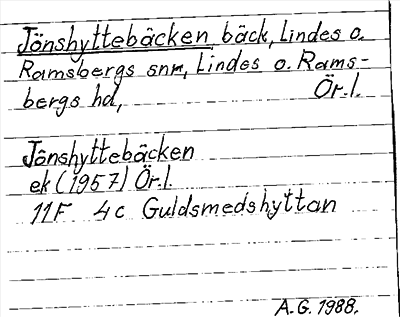 Jönshyttebäcken bäck, Lindes o.
Ramsbergs snr, Lindes o. Rams-
bergs hd, Ör.l.
Jönshyttebäcken
ek (1957) Ör.l.
11F 4c Guldsmedshyttan
A.G. 1988.